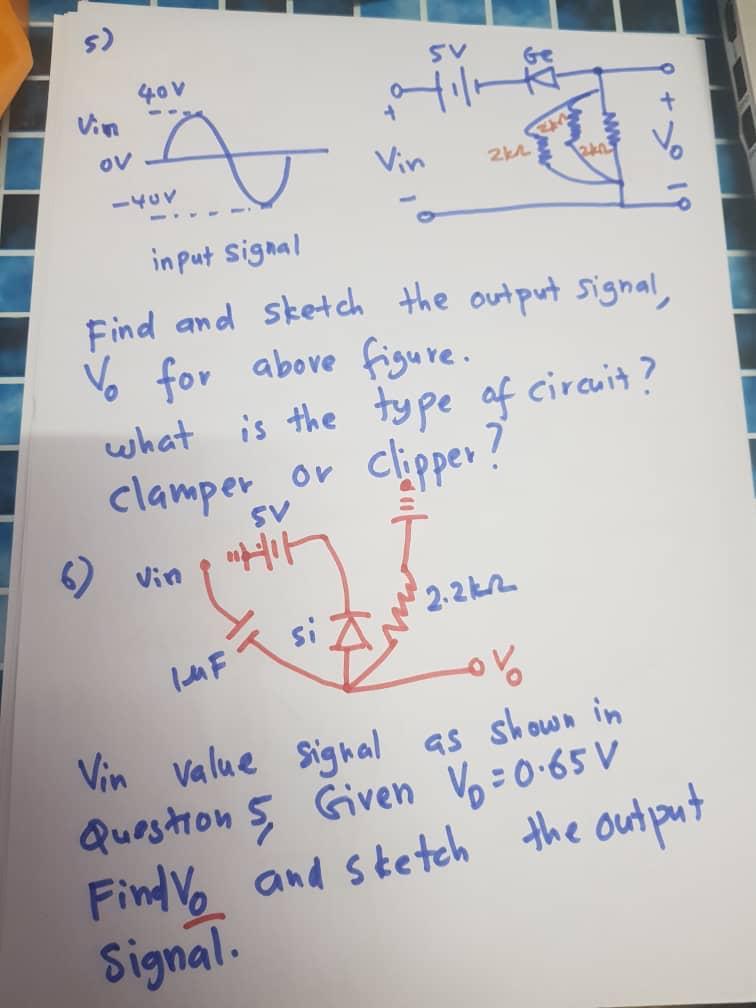 5)
40V
Vin
0V
-40V
input signal
5V
Ge
+
Vin
-
2kΩ
2kΩ
2kΩ
+
Vo
-
Find and sketch the output signal,
Vo for above figure.
what is the type of circuit?
clamper or clipper?
6)
Vin
5V
1μF
Si
2.2kΩ
Vo
Vin value signal as shown in
Question 5, Given VD=0.65V
Find Vo and sketch the output
signal.